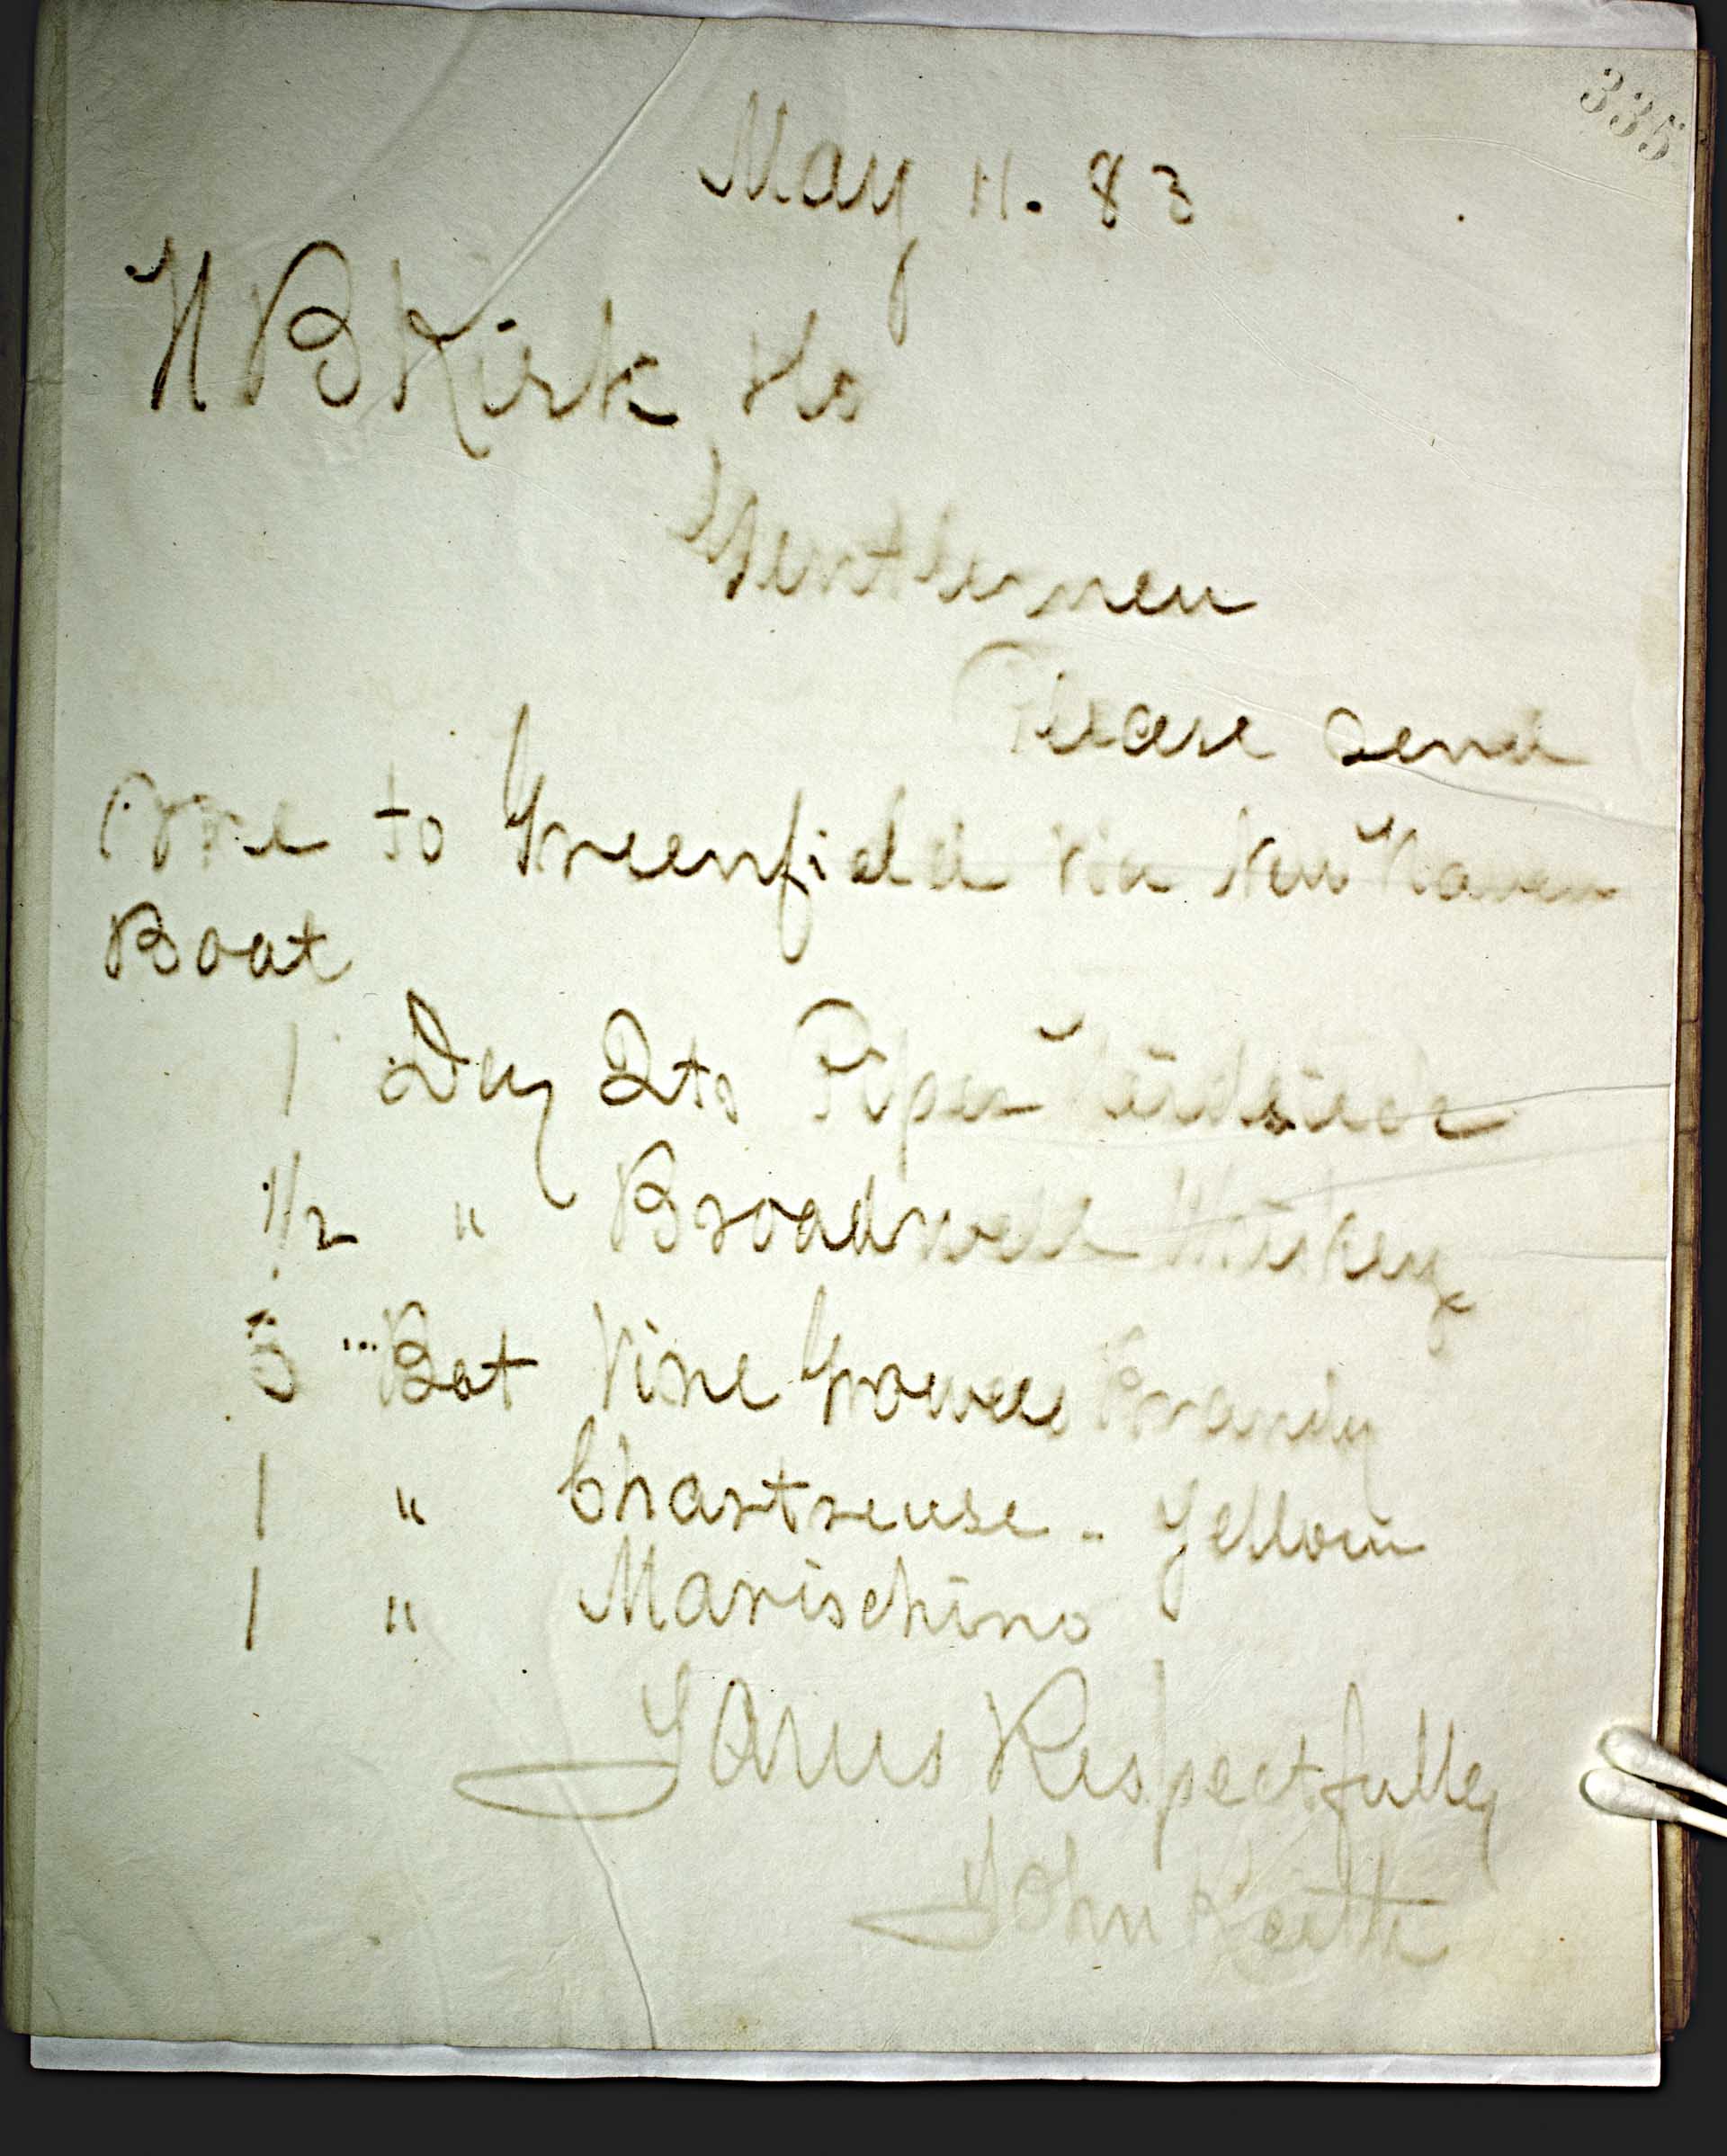 335
May 11. 83
H B Kirk & Co
Gentlemen
Please send
me to Greenfield Via New Haven
Boat
1 Doz Qts Piper Heidsieck
1/2 " Broadwell Whiskey
5 Bot Vine Growers Brandy
1 " Chartreuse - Yellow
1 " Marischino
Yours Respectfully
John Keith